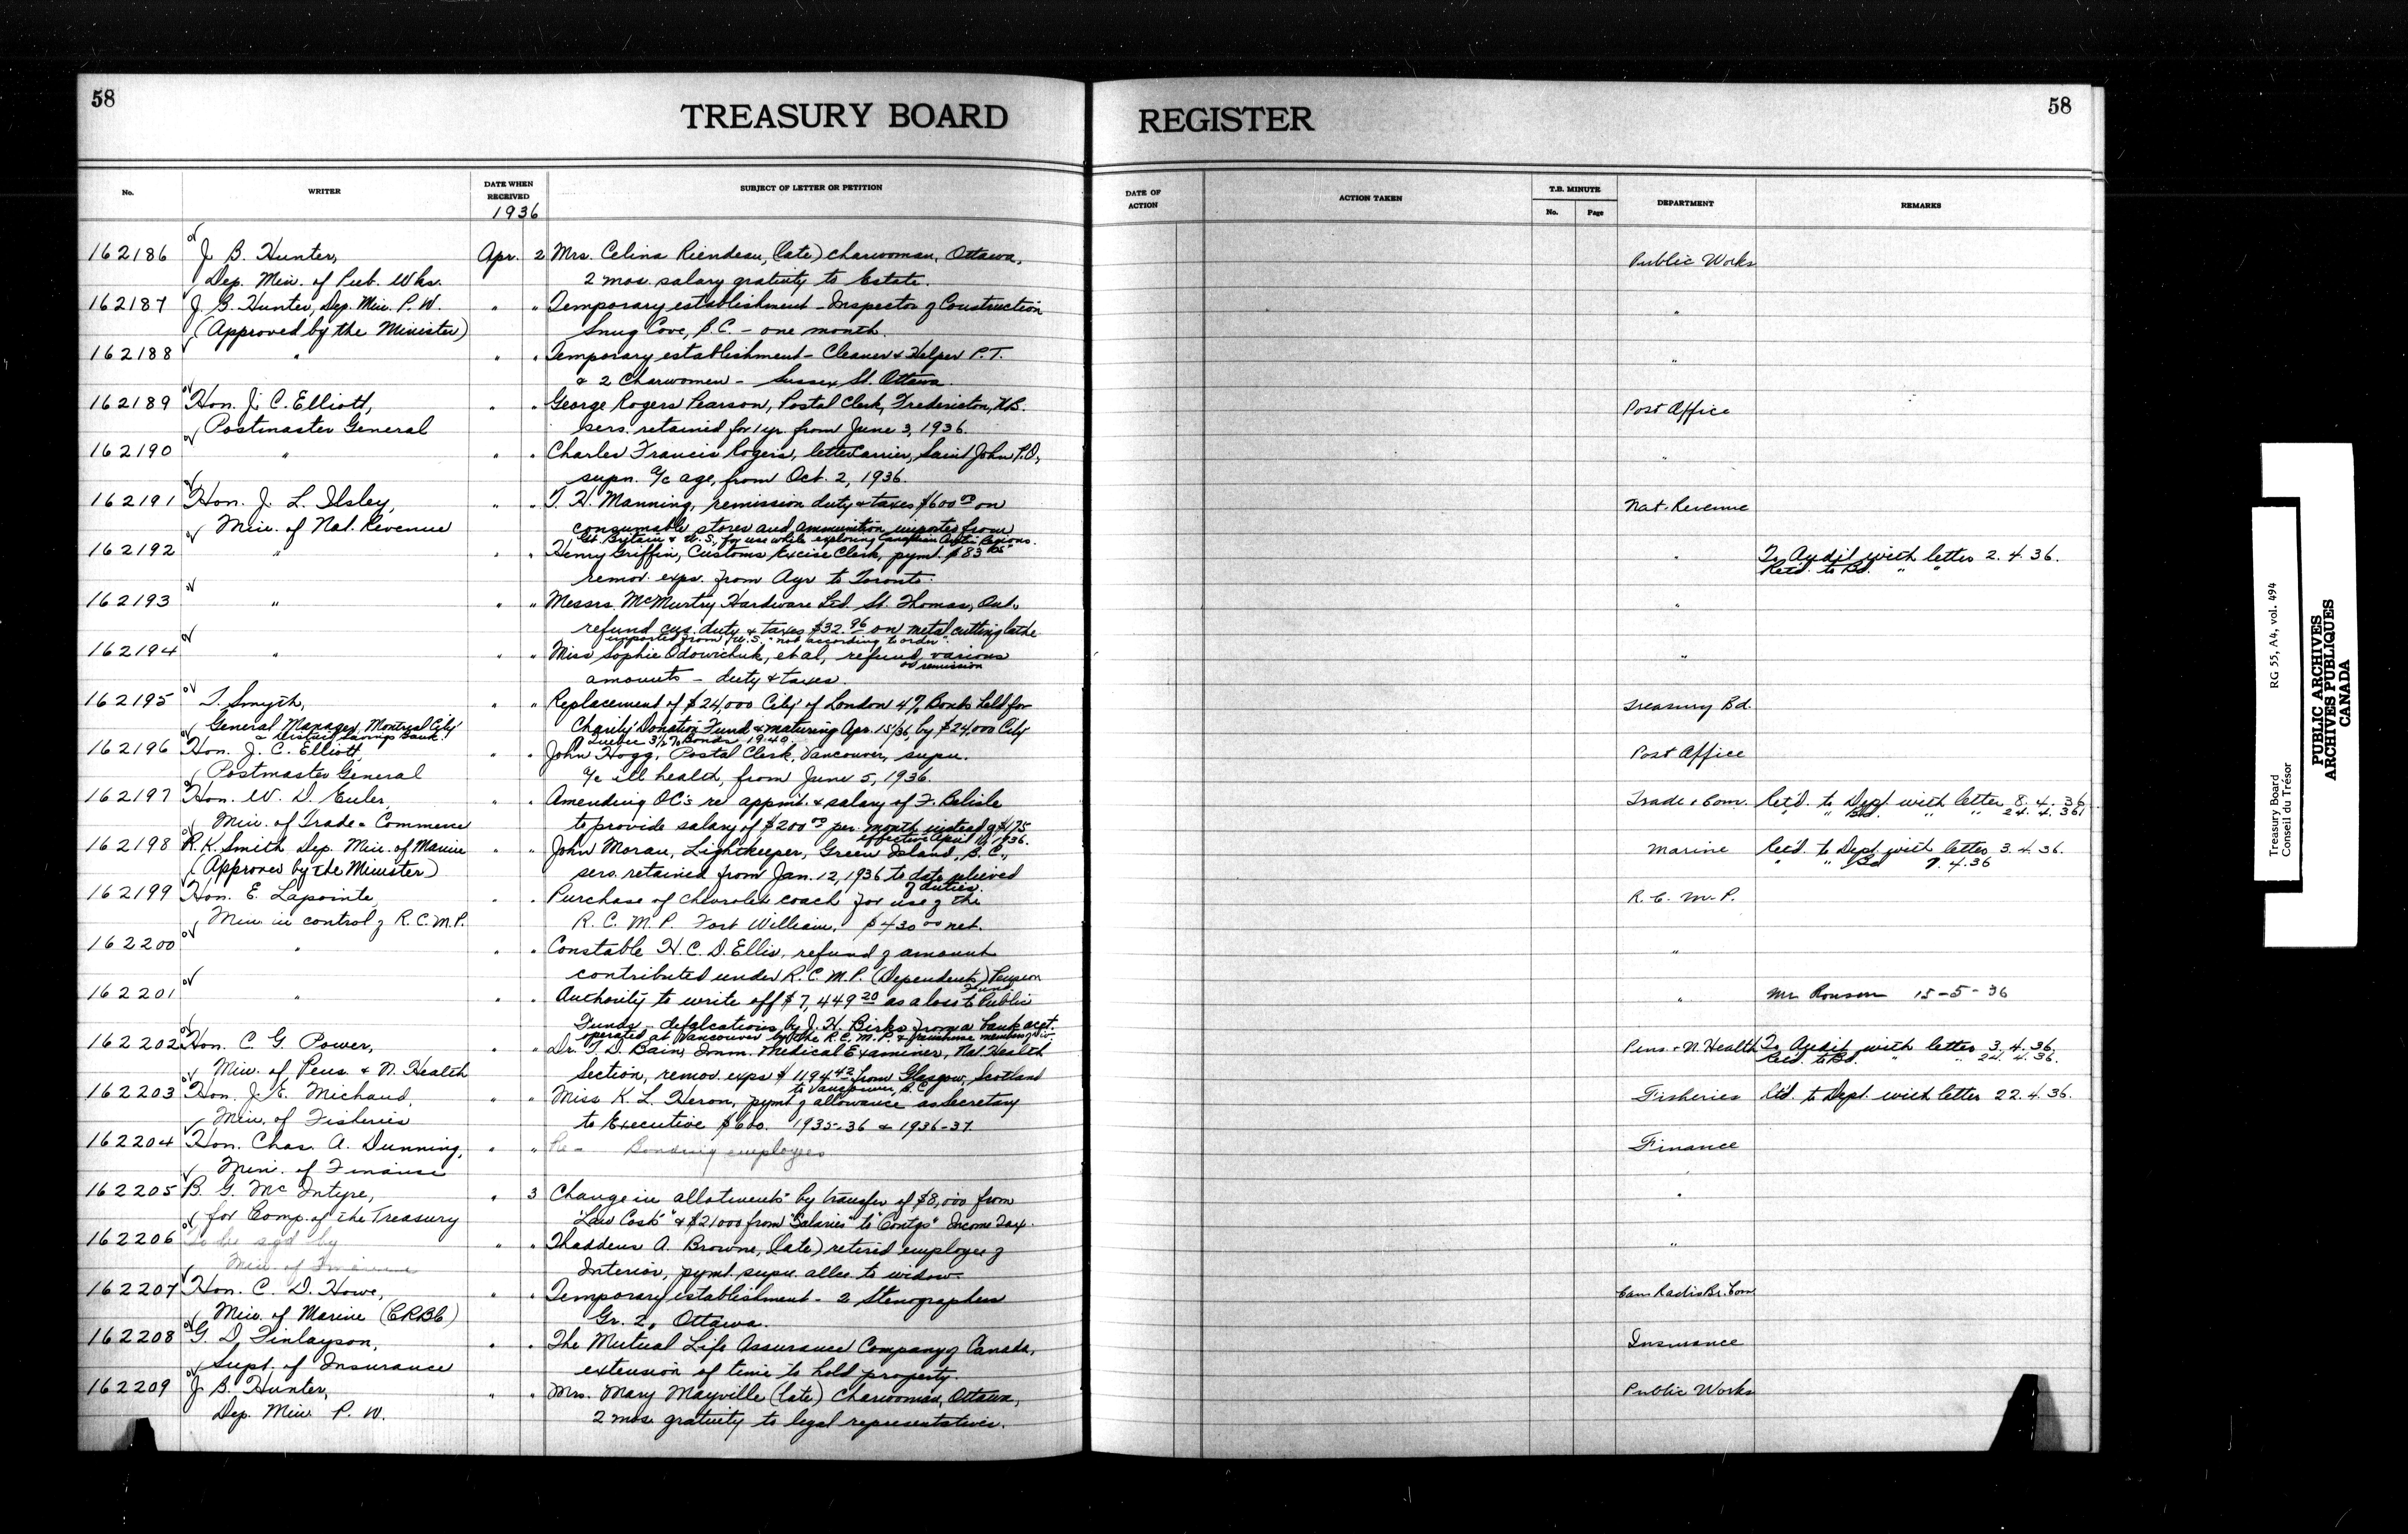 58
TREASURY BOARD
REGISTER
58
No.
WRITER
DATE WHEN RECEIVED
1936
SUBJECT OF LETTER OR PETITION
DATE OF ACTION
ACTION TAKEN
T.B. MINUTE
No.
Page
DEPARTMENT
REMARKS
162186 J. B. Hunter, Apr. 2 Mrs. Celina Riendeau, (late) charwoman, Ottawa, Public Works
Dep. Min. of Pub. Wks. 2 mos. salary gratuity to Estate.
162187 J. B. Hunter, Dep. Min. P. W. " " Temporary establishment - Inspector of Construction "
(Approved by the Minister) Snug Cove, B.C. - one month.
162188 " " " Temporary establishment - Cleaner & Helper P.T. "
& 2 Charwomen - Sussex St. Ottawa.
162189 Hon. J. C. Elliott, " " George Rogers Pearson, Postal Clerk, Fredericton, N.B. Post Office
Postmaster General sers. retained for 1 yr. from June 3, 1936.
162190 " " " Charles Francis Rogers, letter carrier, Saint John P.O., "
supn. a/c age, from Oct. 2, 1936.
162191 Hon. J. L. Ilsley, " " T. H. Manning, remission duty & taxes $600.00 on Nat. Revenue
Min. of Nat. Revenue consumable stores and ammunition imported from
Gt. Britain & U.S. for use while exploring Canadian Arctic Regions.
162192 " " " Henry Griffin, Customs Excise Clerk, pymt. $83 " To Audit with letter 2.4.36.
remov. exps. from Ayr to Toronto. Retd. to Bd. " "
162193 " " " Messrs. McMurtry Hardware Ltd. St. Thomas, Ont. "
refund cus. duty & taxes $32.96 on metal cutting lathe
imported from U.S. "not according to order".
162194 " " " Miss Sophie Odowichuk, et al, refund various "
or remission
amounts - duty & taxes.
162195 T. Smyth, " " Replacement of $24,000 City of London 4% Bonds held for Treasury Bd.
General Manager, Montreal City Charity Donation Fund & maturing Apr. 15/36, by $24,000 City
& District Savings Bank. Quebec 3½% Bonds 1940.
162196 Hon. J. C. Elliott, " " John Hogg, Postal Clerk, Vancouver, supn. Post Office
Postmaster General a/c ill health, from June 5, 1936.
162197 Hon. W. D. Euler, " " Amending OC's re appmt. & salary of F. Belisle Trade & Com. Ret'd. to Dept. with letter 8.4.36
Min. of Trade & Commerce to provide salary of $200.00 per month instead of $175 " " Bd. " " 24.4.36
effective April 1, 1936.
162198 R. K. Smith Dep. Min. of Marine " " John Moran, Lightkeeper, Green Island, B.C., Marine Ret'd. to Dept. with letter 3.4.36.
(Approved by the Minister) sers. retained from Jan. 12, 1936 to date relieved " " Bd 7.4.36
of duties.
162199 Hon. E. Lapointe, " " Purchase of Chevrolet coach for use of the R.C.M.P.
Min. in control of R.C.M.P. R.C.M.P. Fort William, $430.00 net.
162200 " " " Constable H. C. D. Ellis, refund of amount "
contributed under R.C.M.P. (Dependents) Pension
Fund
162201 " " " Authority to write off $7,449.20 as a loss to Public " Mr Ronson 15-5-36
Funds - defalcations by J. H. Birks from a bank acct.
operated at Vancouver by the R.C.M.P.
162202 Hon. C. G. Power, " " Dr. T. D. Bain, Imm. Medical Examiner, Nat. Health Pens. & N. Health To Audit with letter 3.4.36.
Min. of Pens. & N. Health Section, remov. exps $1194.42 from Glasgow, Scotland Retd. to Bd. " 24.4.36.
to Vancouver, B.C.
162203 Hon. J. E. Michaud, " " Miss K. L. Heron, pymt. of allowance as Secretary Fisheries Rtd. to Dept. with letter 22.4.36.
Min. of Fisheries to Executive $600. 1935-36 & 1936-37.
162204 Hon. Chas. A. Dunning, " " Re - Bonding employees Finance
Min. of Finance
162205 B. G. McIntyre, " 3 Change in allotments by transfer of $8,000 from "
for Comp. of the Treasury "Law Costs" & $21000 from "Salaries" to "Contgs" Income Tax.
162206 To be sgd by " " Thaddeus A. Browne, (late) retired employee of "
Min. of Finance Interior, pymt. supn. allce. to widow.
162207 Hon. C. D. Howe, " " Temporary establishment - 2 Stenographers Can Radio Br. Com
Min. of Marine (CRBC) Gr. 2, Ottawa.
162208 G. D. Finlayson, " " The Mutual Life Assurance Company of Canada, Insurance
Supt. of Insurance extension of time to hold property.
162209 J. B. Hunter, " " Mrs. Mary Mayville (late) Charwoman, Ottawa, Public Works
Dep. Min P. W. 2 mos. gratuity to legal representatives.
Treasury Board RG 55, A4, vol. 494
Conseil du Trésor
PUBLIC ARCHIVES
ARCHIVES PUBLIQUES
CANADA